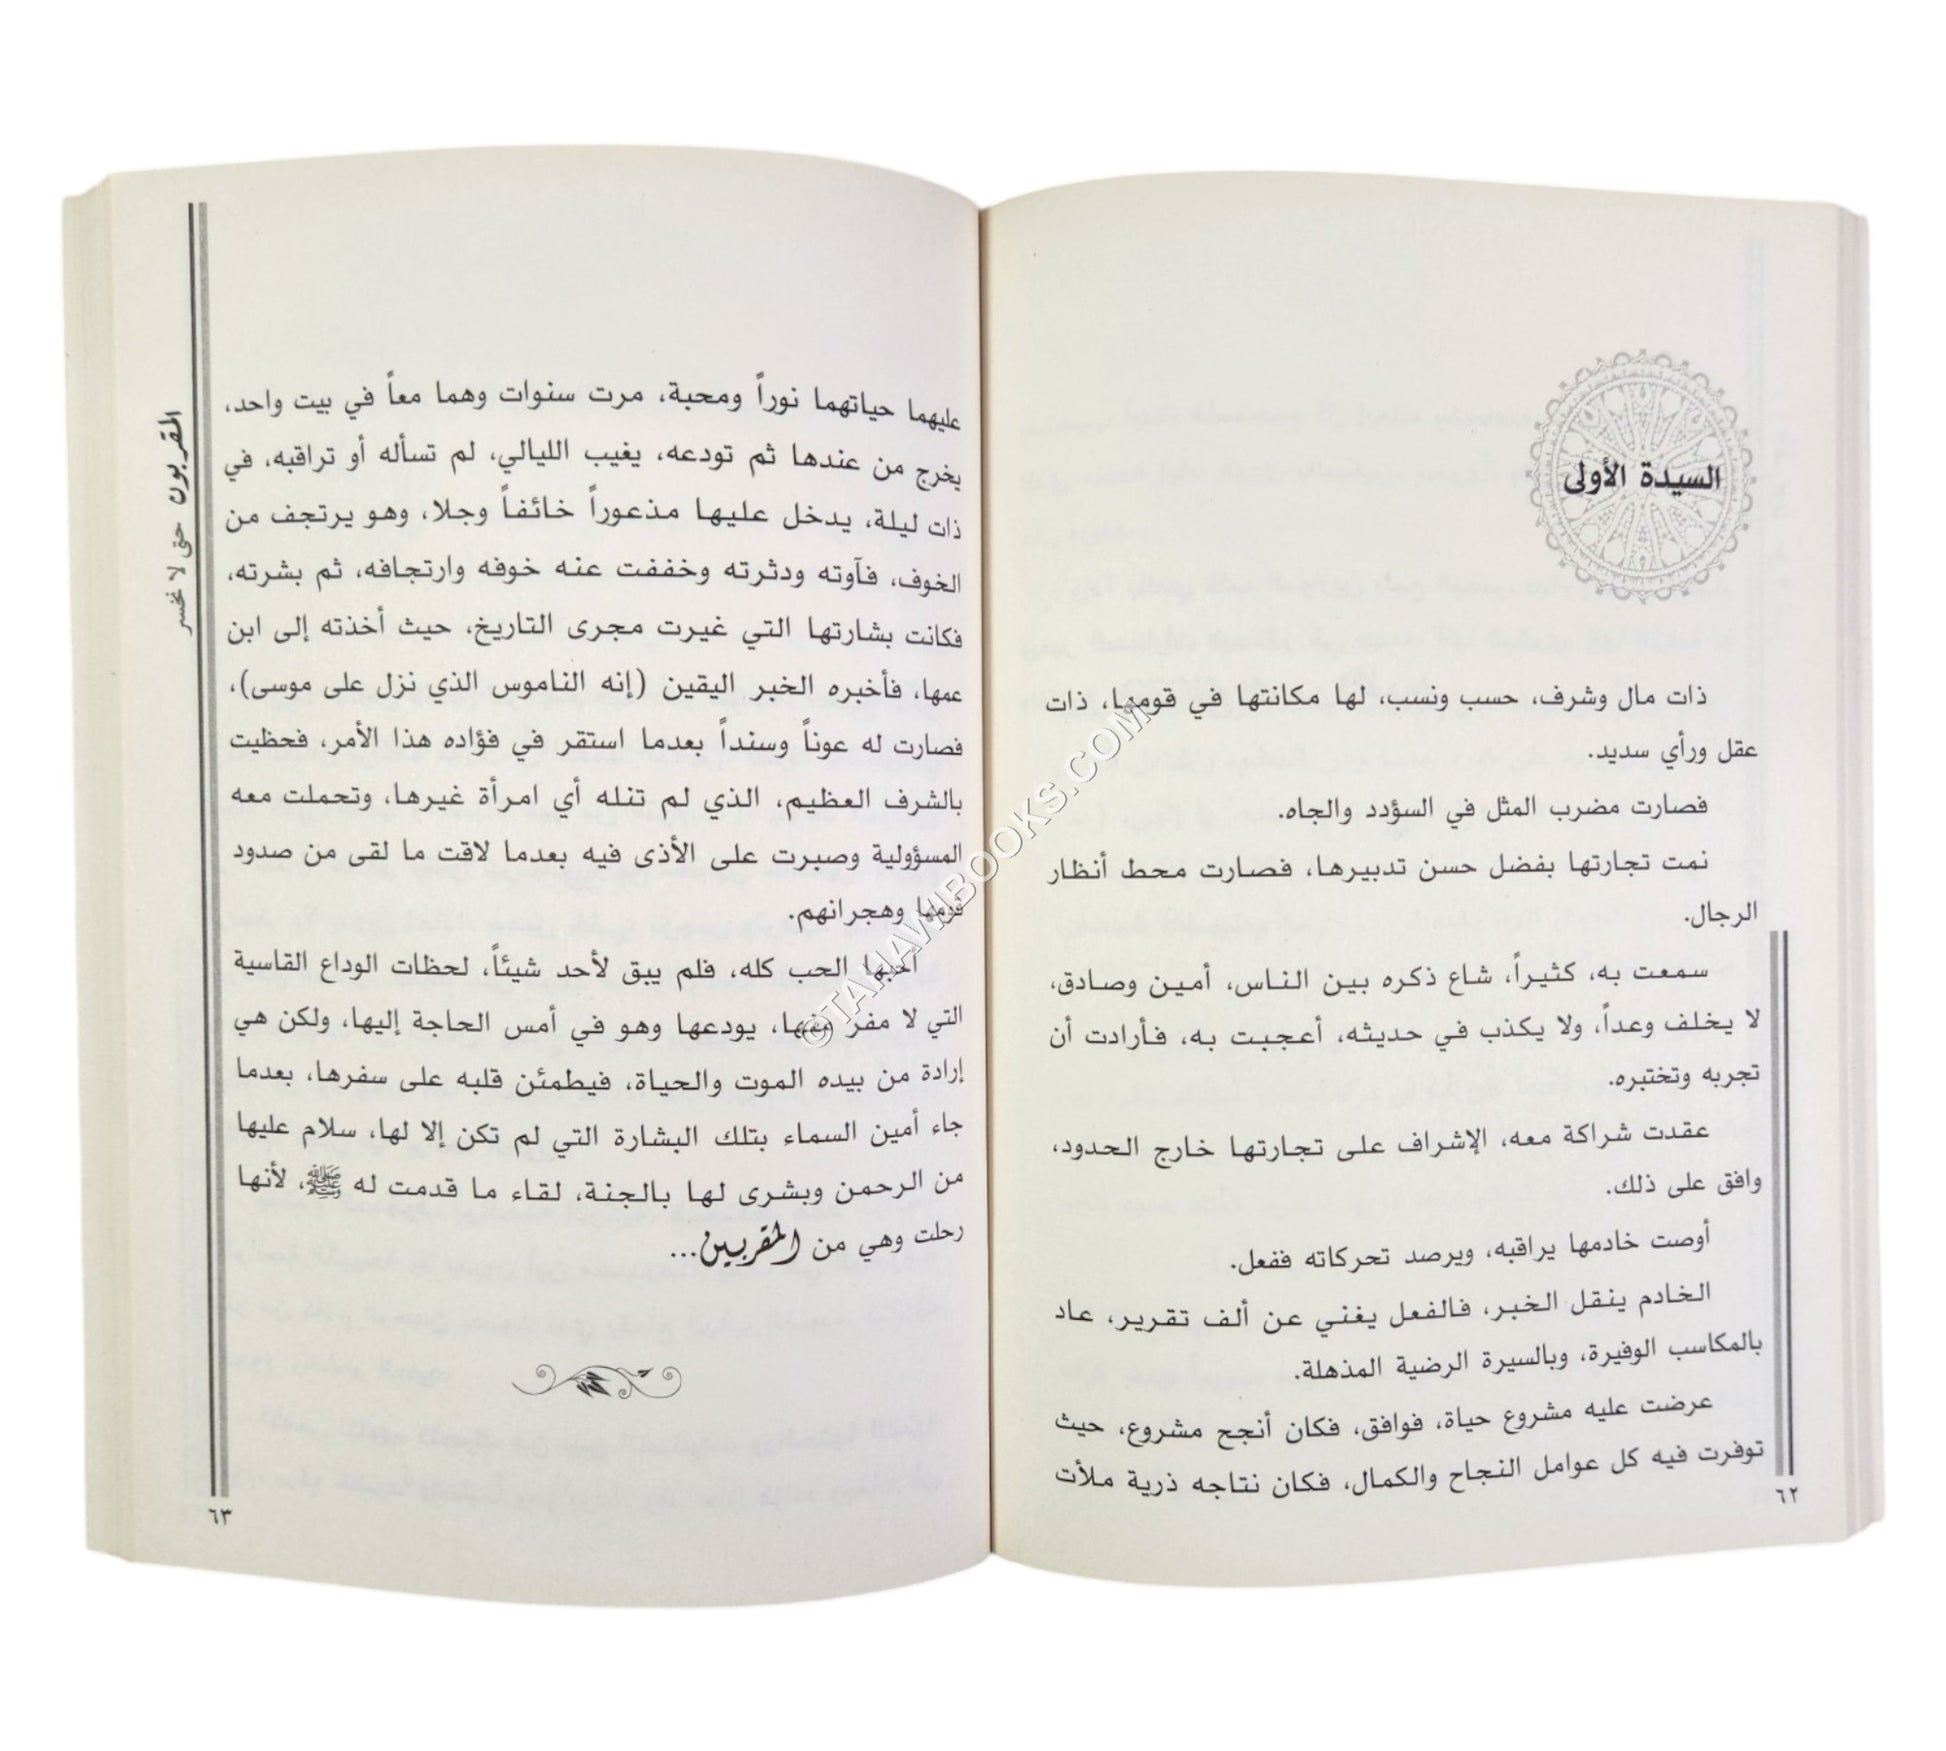 السيدة الأولى
ذات مال وشرف، حسب ونسب، لها مكانتها في قومها، ذات
عقل ورأي سديد.
فصارت مضرب المثل في السؤدد والجاه.
نمت تجارتها بفضل حسن تدبيرها، فصارت محط أنظار
الرجال.
سمعت به، كثيراً، شاع ذكره بين الناس، أمين وصادق،
لا يخلف وعداً، ولا يكذب في حديثه، أعجبت به، فأرادت أن
تجربه وتختبره.
عقدت شراكة معه، الإشراف على تجارتها خارج الحدود،
وافق على ذلك.
أوصت خادمها يراقبه، ويرصد تحركاته ففعل.
الخادم ينقل الخبر، فالفعل يغني عن ألف تقرير، عاد
بالمكاسب الوفيرة، وبالسيرة الرضية المذهلة.
عرضت عليه مشروع حياة، فوافق، فكان أنجح مشروع، حيث
توفرت فيه كل عوامل النجاح والكمال، فكان نتاجه ذرية ملأت
٦٢
عليهما حياتهما نوراً ومحبة، مرت سنوات وهما معاً في بيت واحد،
يخرج من عندها ثم تودعه، يغيب الليالي، لم تسأله أو تراقبه، في
ذات ليلة، يدخل عليها مذعوراً خائفاً وجلا، وهو يرتجف من
الخوف، فآوته ودثرته وخففت عنه خوفه وارتجافه، ثم بشرته،
فكانت بشارتها التي غيرت مجرى التاريخ، حيث أخذته إلى ابن
عمها، فأخبره الخبر اليقين (إنه الناموس الذي نزل على موسى)،
فصارت له عوناً وسنداً بعدما استقر في فؤاده هذا الأمر، فحظيت
بالشرف العظيم، الذي لم تنله أي امرأة غيرها، وتحملت معه
المسؤولية وصبرت على الأذى فيه بعدما لاقت ما لقى من صدود
قومها وهجرانهم.
أحبها الحب كله، فلم يبق لأحد شيئاً، لحظات الوداع القاسية
التي لا مفر منها، يودعها وهو في أمس الحاجة إليها، ولكن هي
إرادة من بيده الموت والحياة، فيطمئن قلبه على سفرها، بعدما
جاء أمين السماء بتلك البشارة التي لم تكن إلا لها، سلام عليها
من الرحمن وبشرى لها بالجنة، لقاء ما قدمت له ﷺ، لأنها
رحلت وهي من المقربين...
المقربون حتى لا نخسر
٦٣
©TAHAWIBOOKS.COM